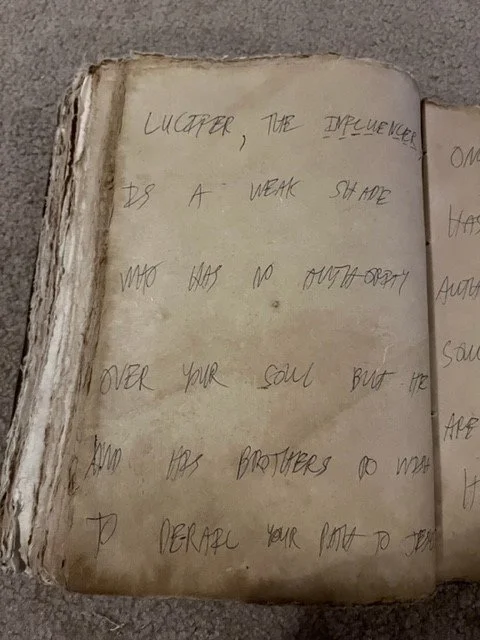 LUCIFER, THE INFLUENCER,
IS A WEAK SHADE
WHO HAS NO AUTHORITY
OVER YOUR SOUL BUT HE
AND HIS BROTHERS DO WISH
TO DERAIL YOUR PATH TO
HAS
ARE